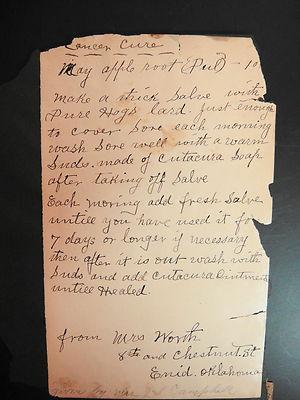 Cancer Cure
May apple root (Pul) - 10
make a thick Salve with
Pure Hogs lard. Just enough
to cover Sore each morning
wash Sore well with a warm
Suds. made of Cutacura Soap
after taking off Salve
Each moring add fresh Salve
untill you have used it for
7 days or longer if necessary
then after it is out wash with
Suds and add Cutacura Ointment
untill Healed.
from Mrs Worth
8th and Chestnut. St
Enid. Oklahoma
Campbell